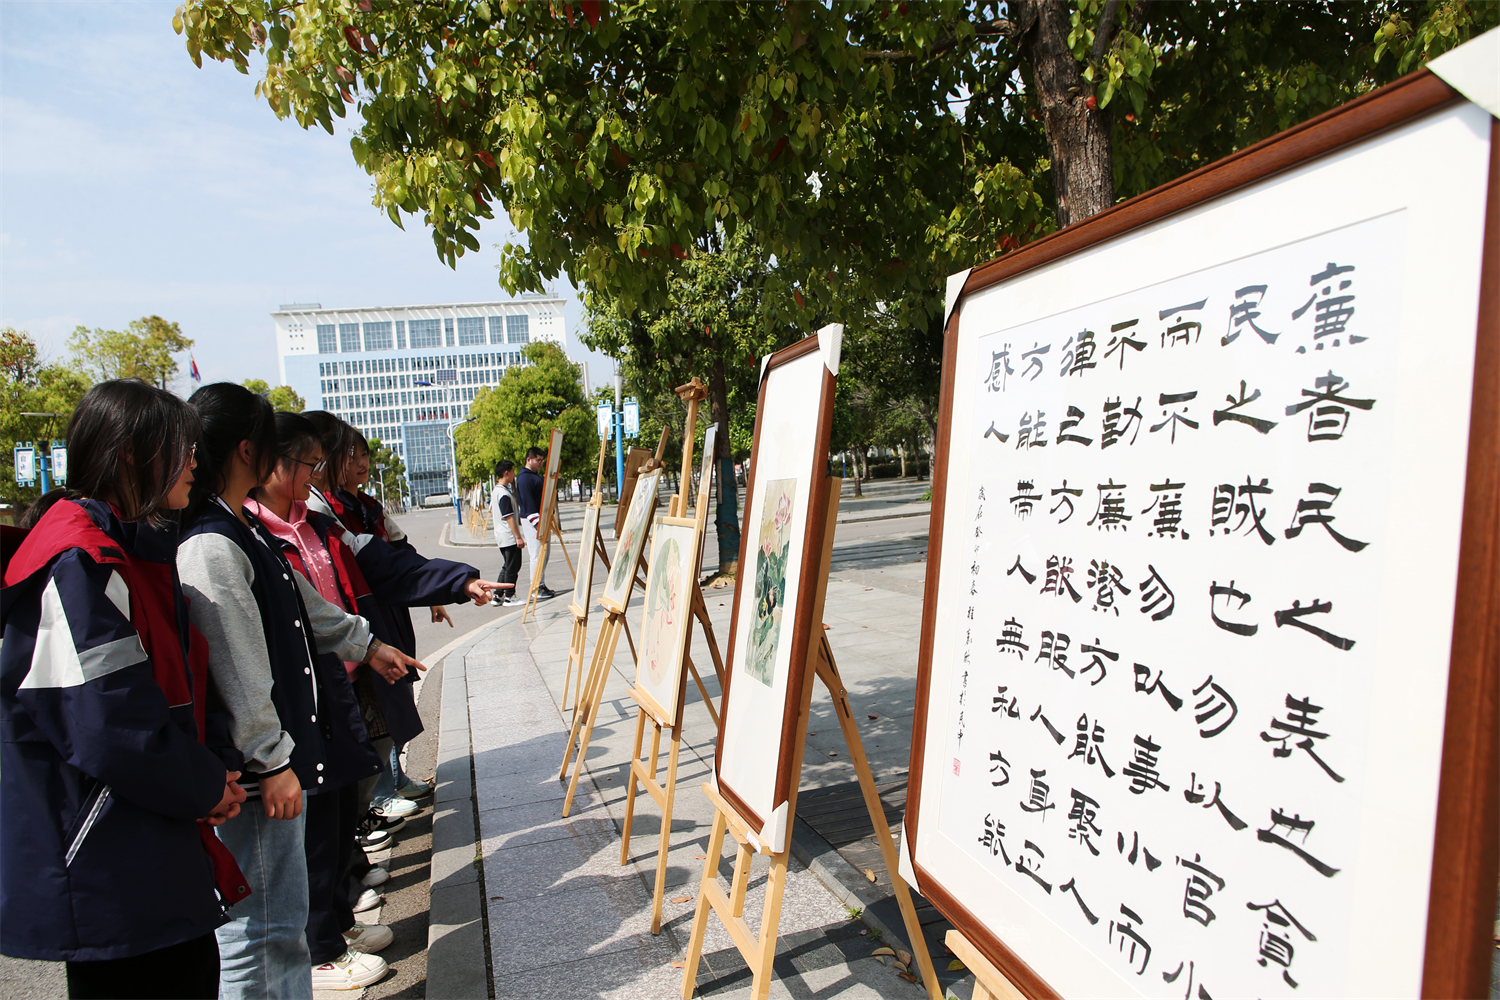 廉者民之表也貪
民之賊也勿以官小
而不廉勿以事小而
不勤廉潔方能聚人
律己方能服人身正
方能带人無私方能
感人
歲在癸卯初春